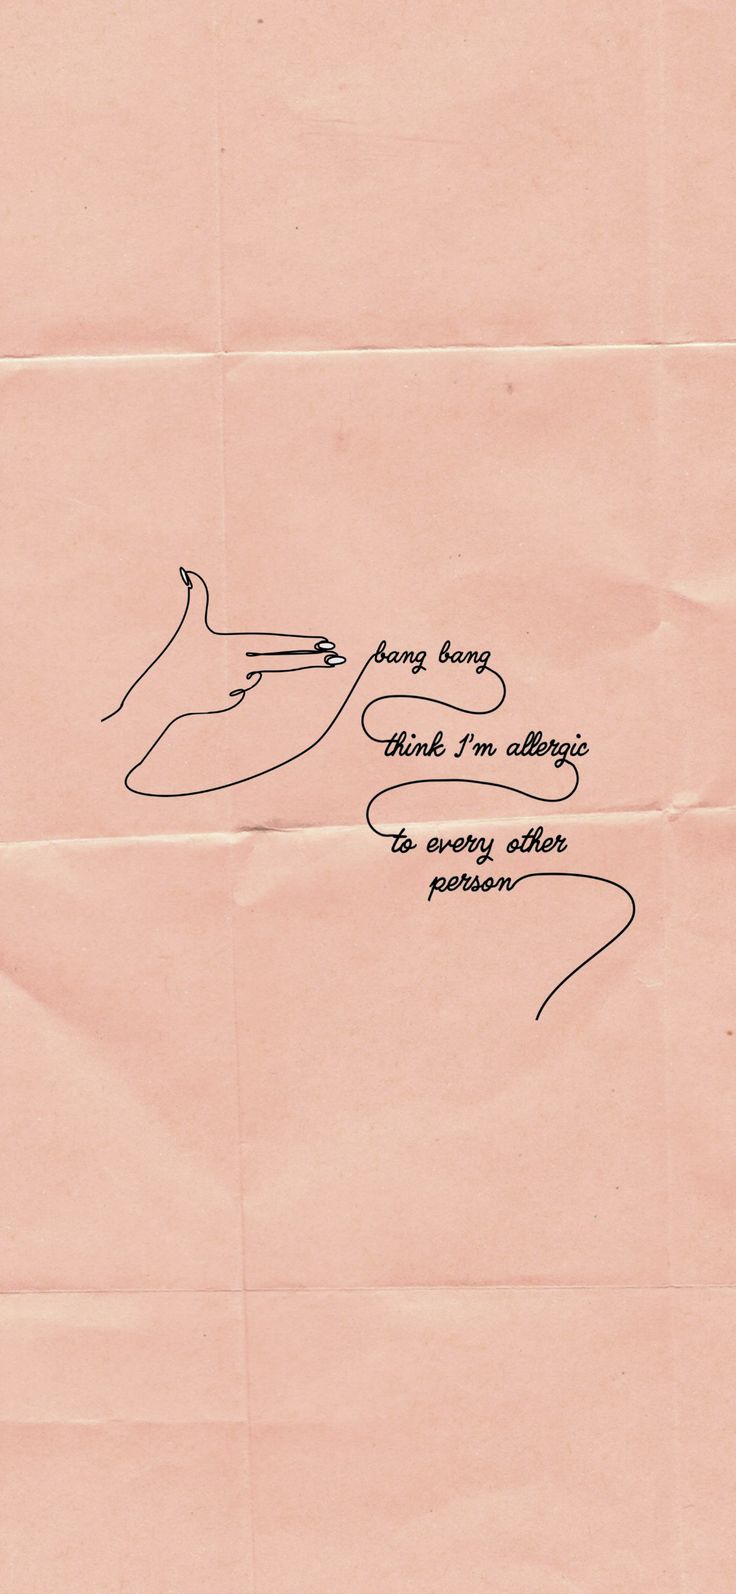 bang bang
think I'm allergic
to every other
person